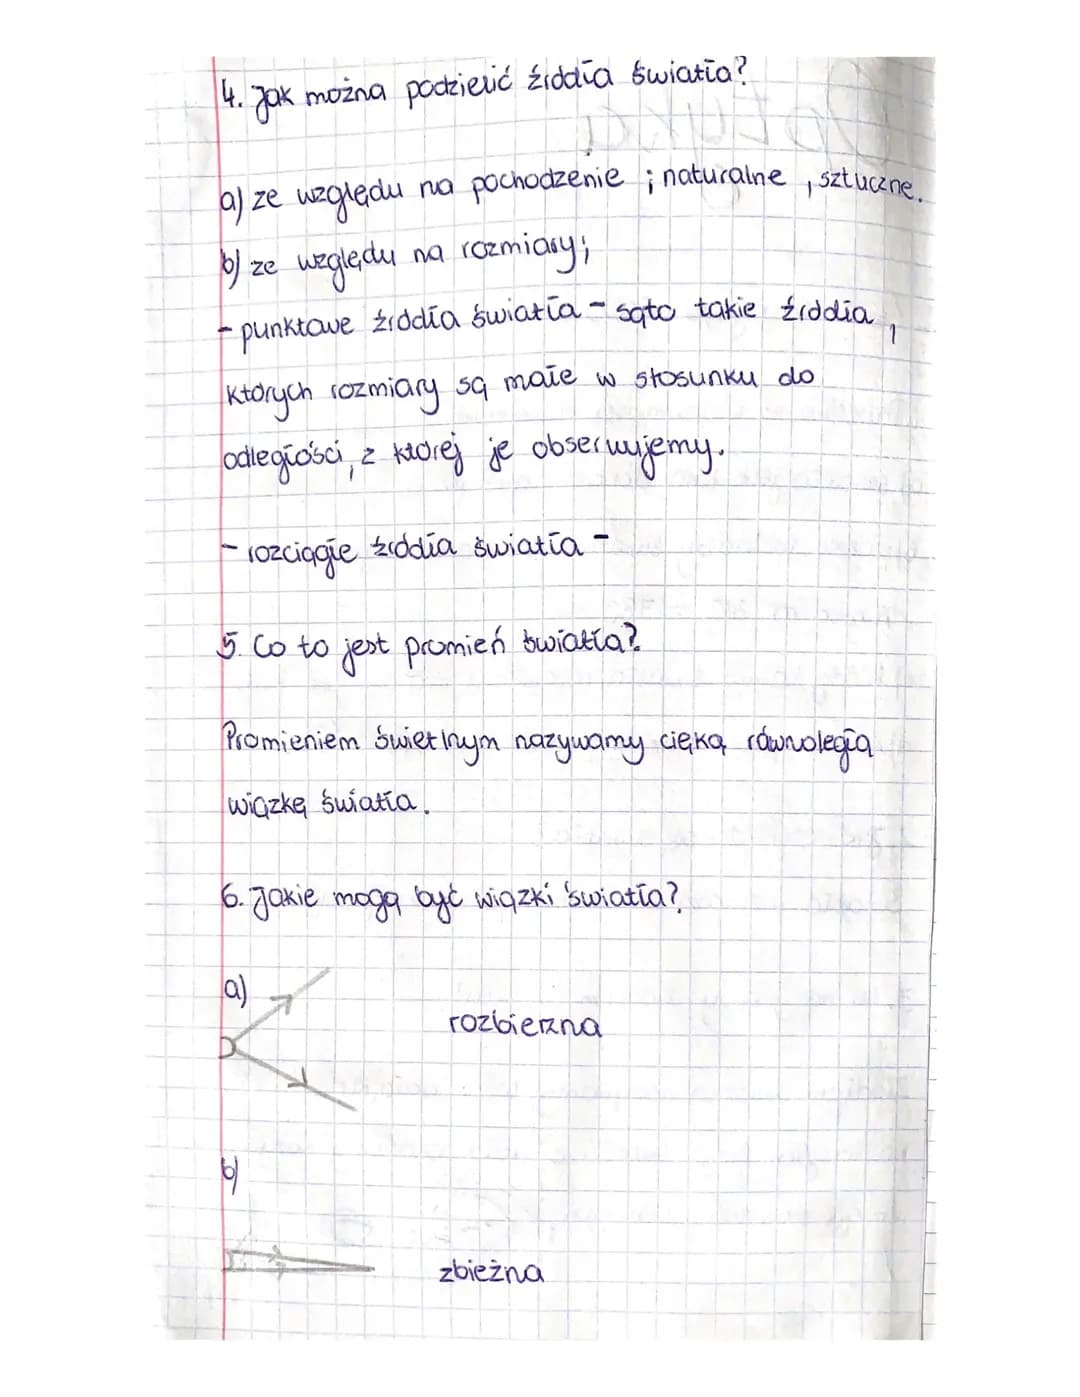 4. Jak można podzielić źródła światła?
a) ze względu na pochodzenie ; naturalne , sztuczne.
b) ze względu na rozmiary;
- punktowe źródła światła - sąto takie źródła ,
których rozmiary są małe w stosunku do
odległości, z której je obserwujemy.
- rozciągłe źródła światła -
5. Co to jest promień światła?
Promieniem świetlnym nazywamy cięką równoległą
wiązkę światła.
6. Jakie mogą być wiązki światła?
a)
rozbierzna
b)
zbieżna